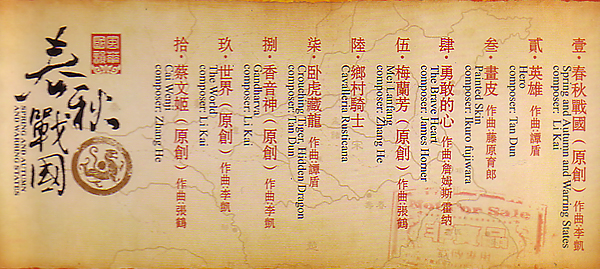 壹·春秋戰國（原創）作曲·李凱
Spring and Autumn and Warring States
composer: Li Kai
貳·英雄 作曲·譚盾
Hero
composer: Tan Dun
叁·畫皮 作曲·藤原育郎
Painted Skin
composer: Ikuro fujiwara
肆·勇敢的心 作曲·詹姆斯·霍納
The Brave Heart
composer: James Horner
伍·梅蘭芳（原創）作曲·張鶴
Mei Lanfang
composer: Zhang He
陸·鄉村騎士
Cavaleria Rusticana
柒·卧虎藏龍 作曲·譚盾
Crouching Tiger, Hidden Dragon
composer: Tan Dun
捌·香音神（原創）作曲·李凱
Gandharva
composer: Li Kai
玖·世界（原創）作曲·李凱
The World
composer: Li Kai
拾·蔡文姬（原創）作曲·張鶴
Cai Wenji
composer: Zhang He
春秋戰國
SPRING AND AUTUMN
WARRING STATES
Not For Sale